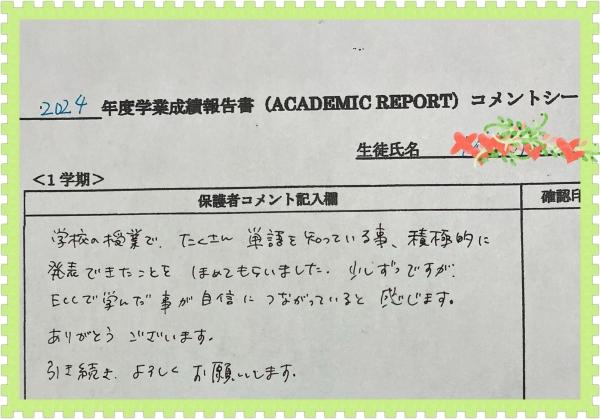 2024 年度学業成績報告書(ACADEMIC REPORT)コメントシー
生徒氏名
<1学期>
保護者コメント記入欄
確認印
学校の授業で、たくさん 単語を知っている事、積極的に
発表できたことを ほめてもらいました。少しずつですが、
ECCで学んだ事が自信に つながっていると 感じます。
ありがとう ございます。
引き続き、よろしく お願いします。